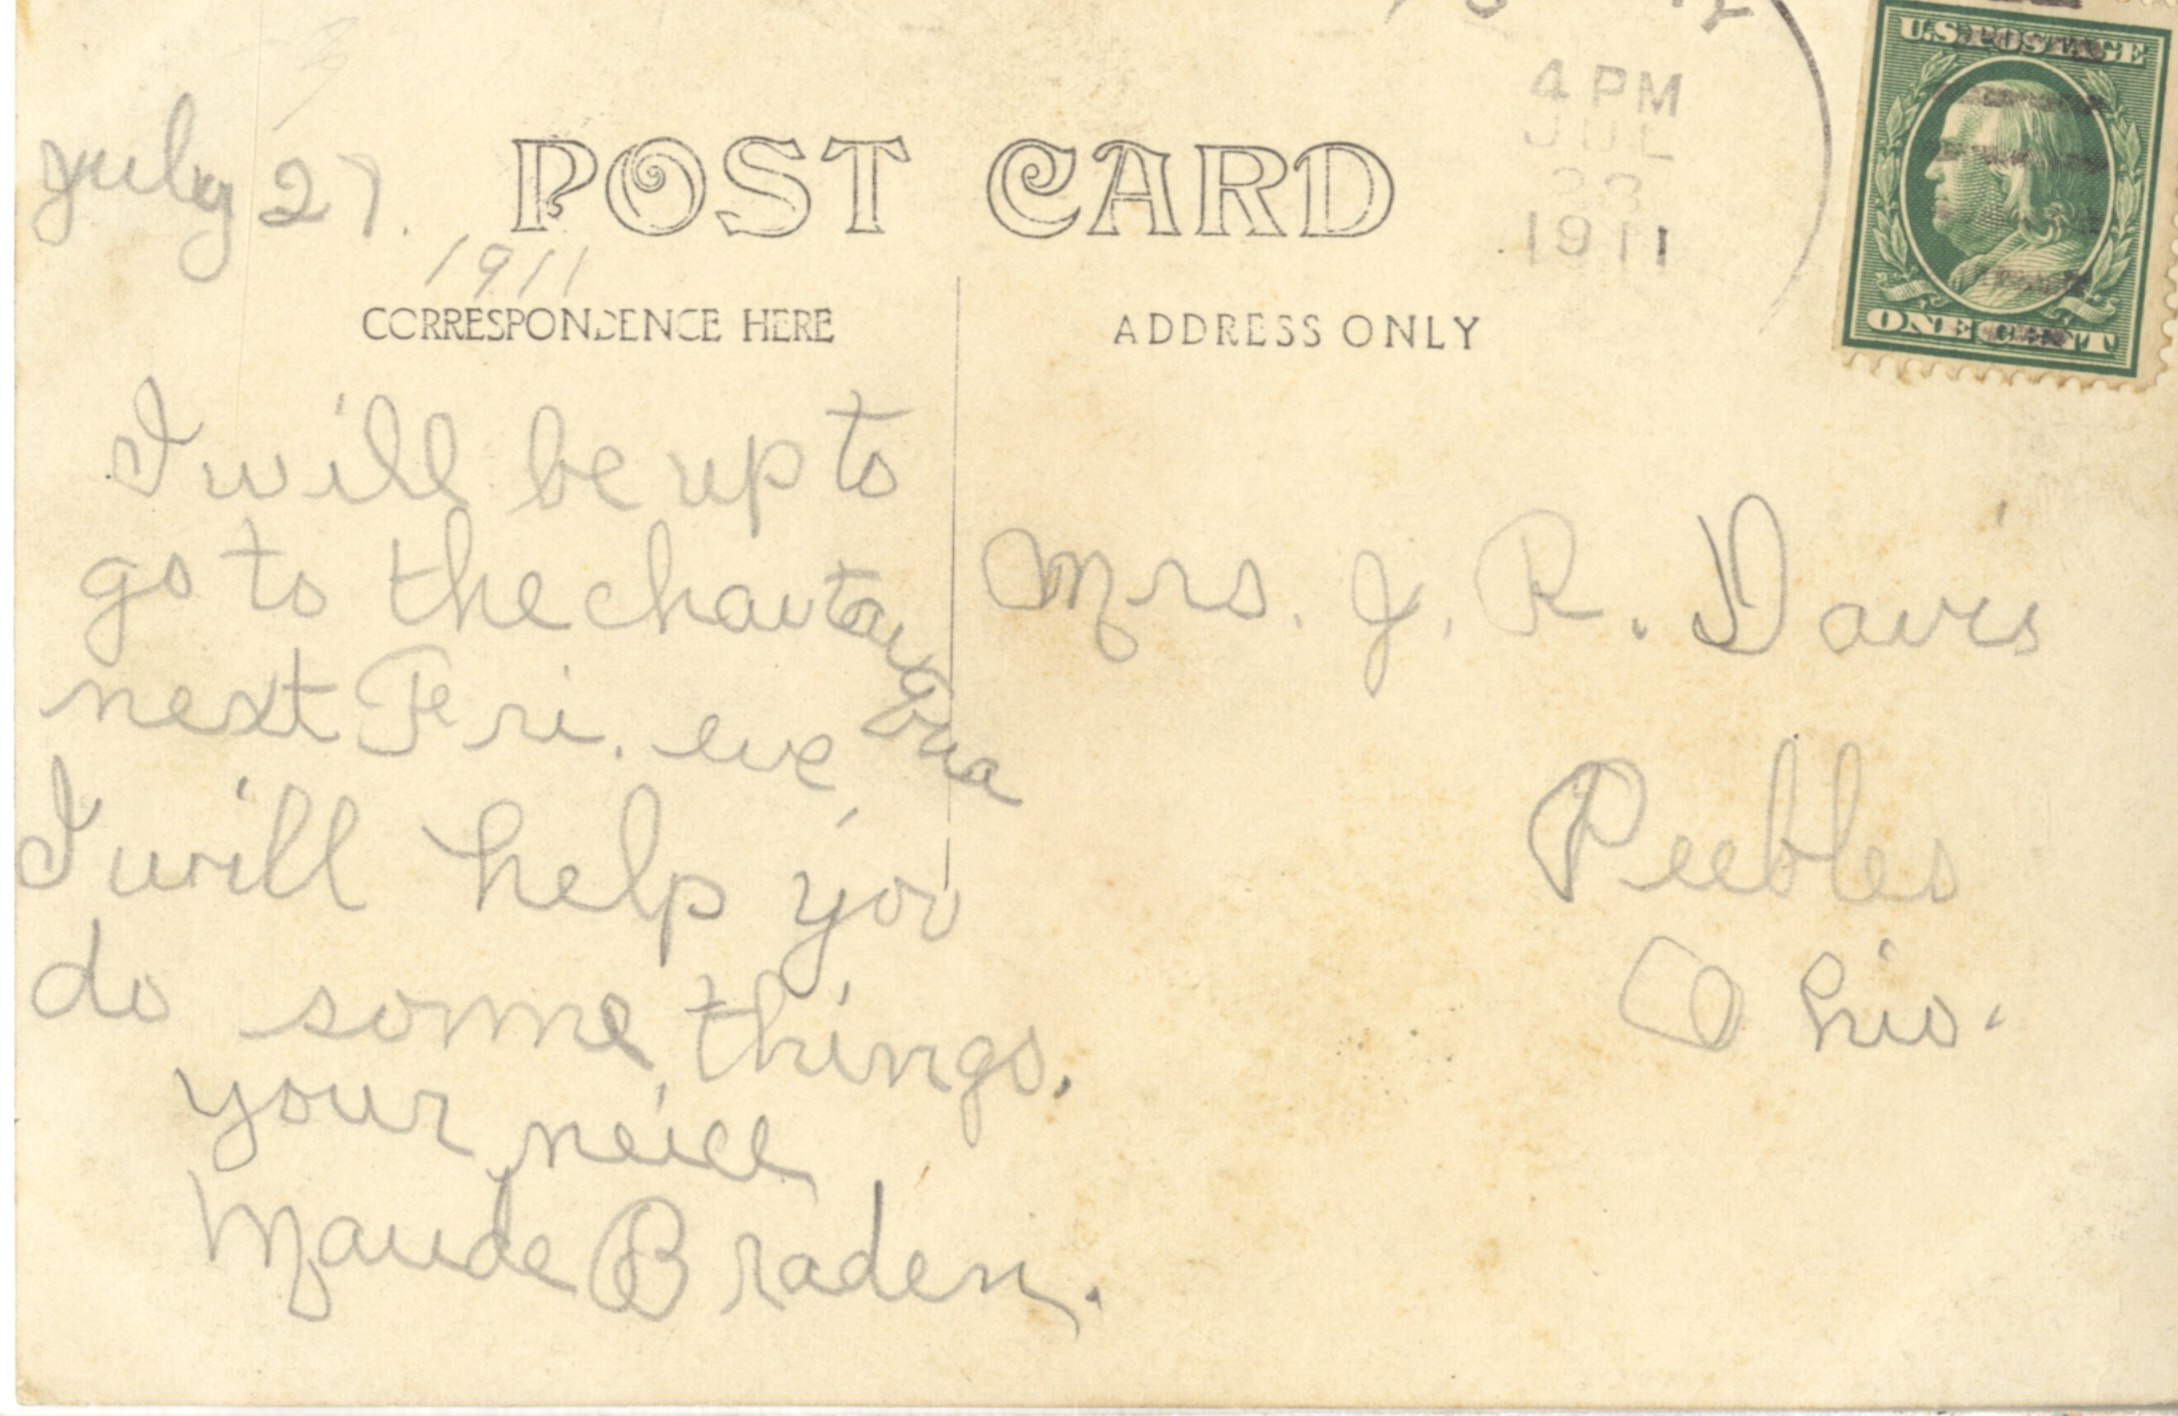 4 PM
JUL
1911
U.S. POSTAGE
ONE CENT
July 27.
1911
POST CARD
CORRESPONDENCE HERE
ADDRESS ONLY
I will be up to
go to the chautauqua
next Fri. eve.
I will help you
do some things.
your neice
Maude Braden.
Mrs. J. R. Davis
Peebles
Ohio.